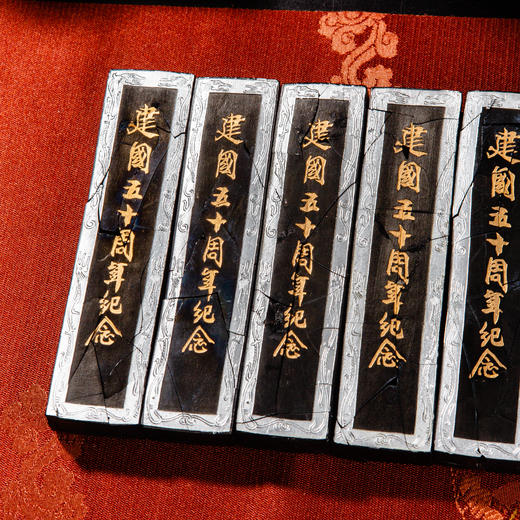 建國五十周年纪念
建國五十周年纪念
建國五十周年纪念
建國五十周年纪念
建國五十周年纪念